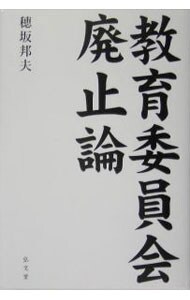 教育委員会
廃止論
穂坂邦夫
弘文堂